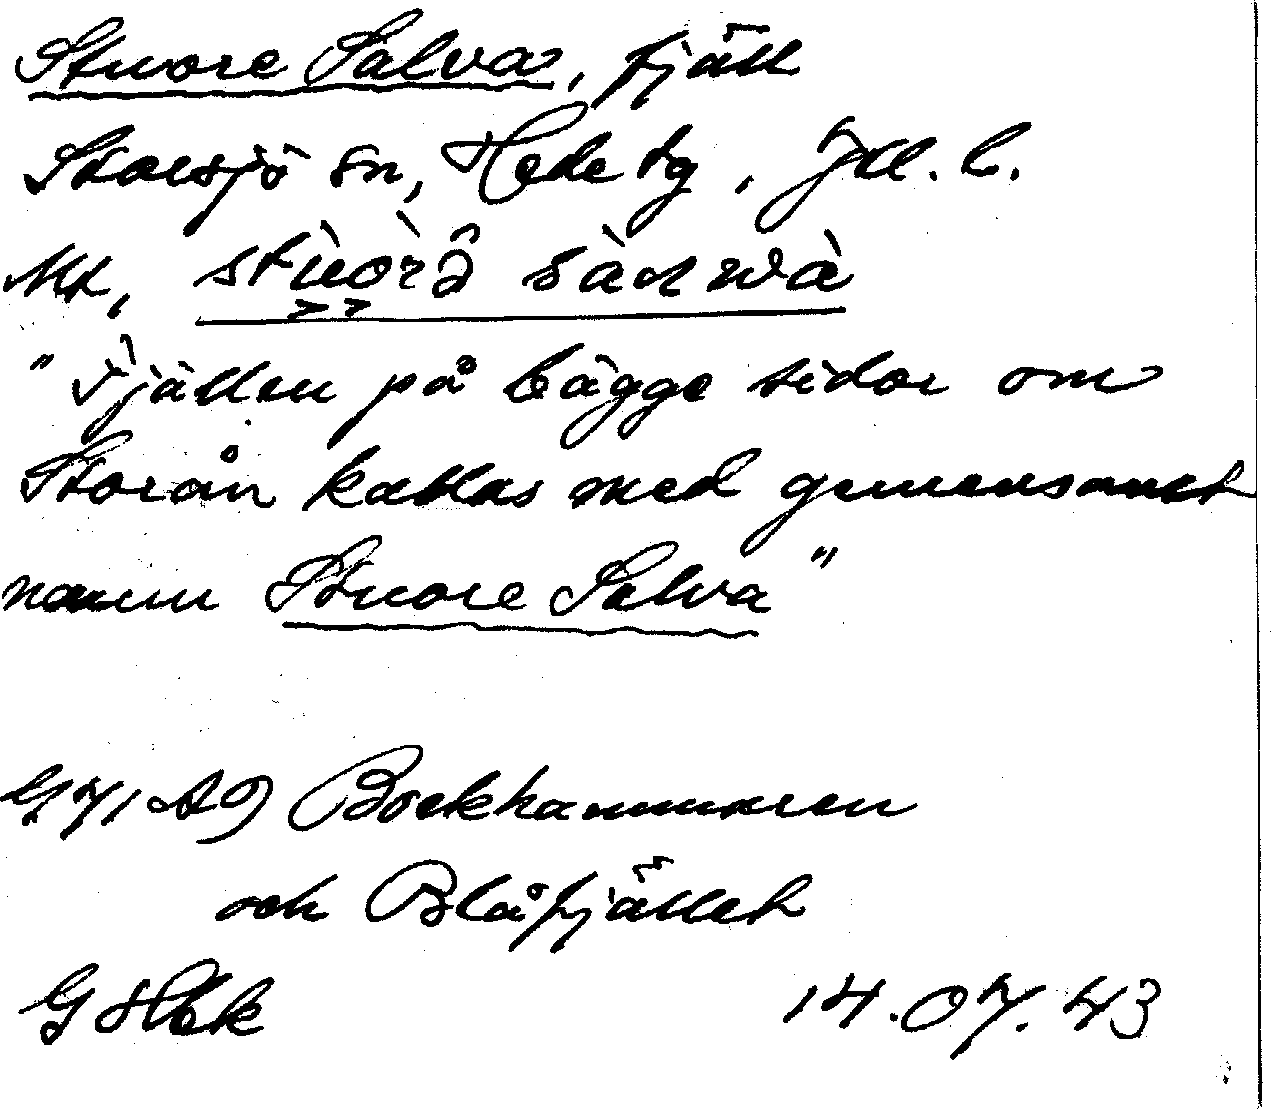 Stuore Salva, fjäll
Storsjö sn, Hede tg, Jtl. l.
Ut,
"Fjällen på bägge sidor om
Storån kallas med gemensamt
namn Stuore Salva"
Bockhammaren
och Blåfjället
14.07.43